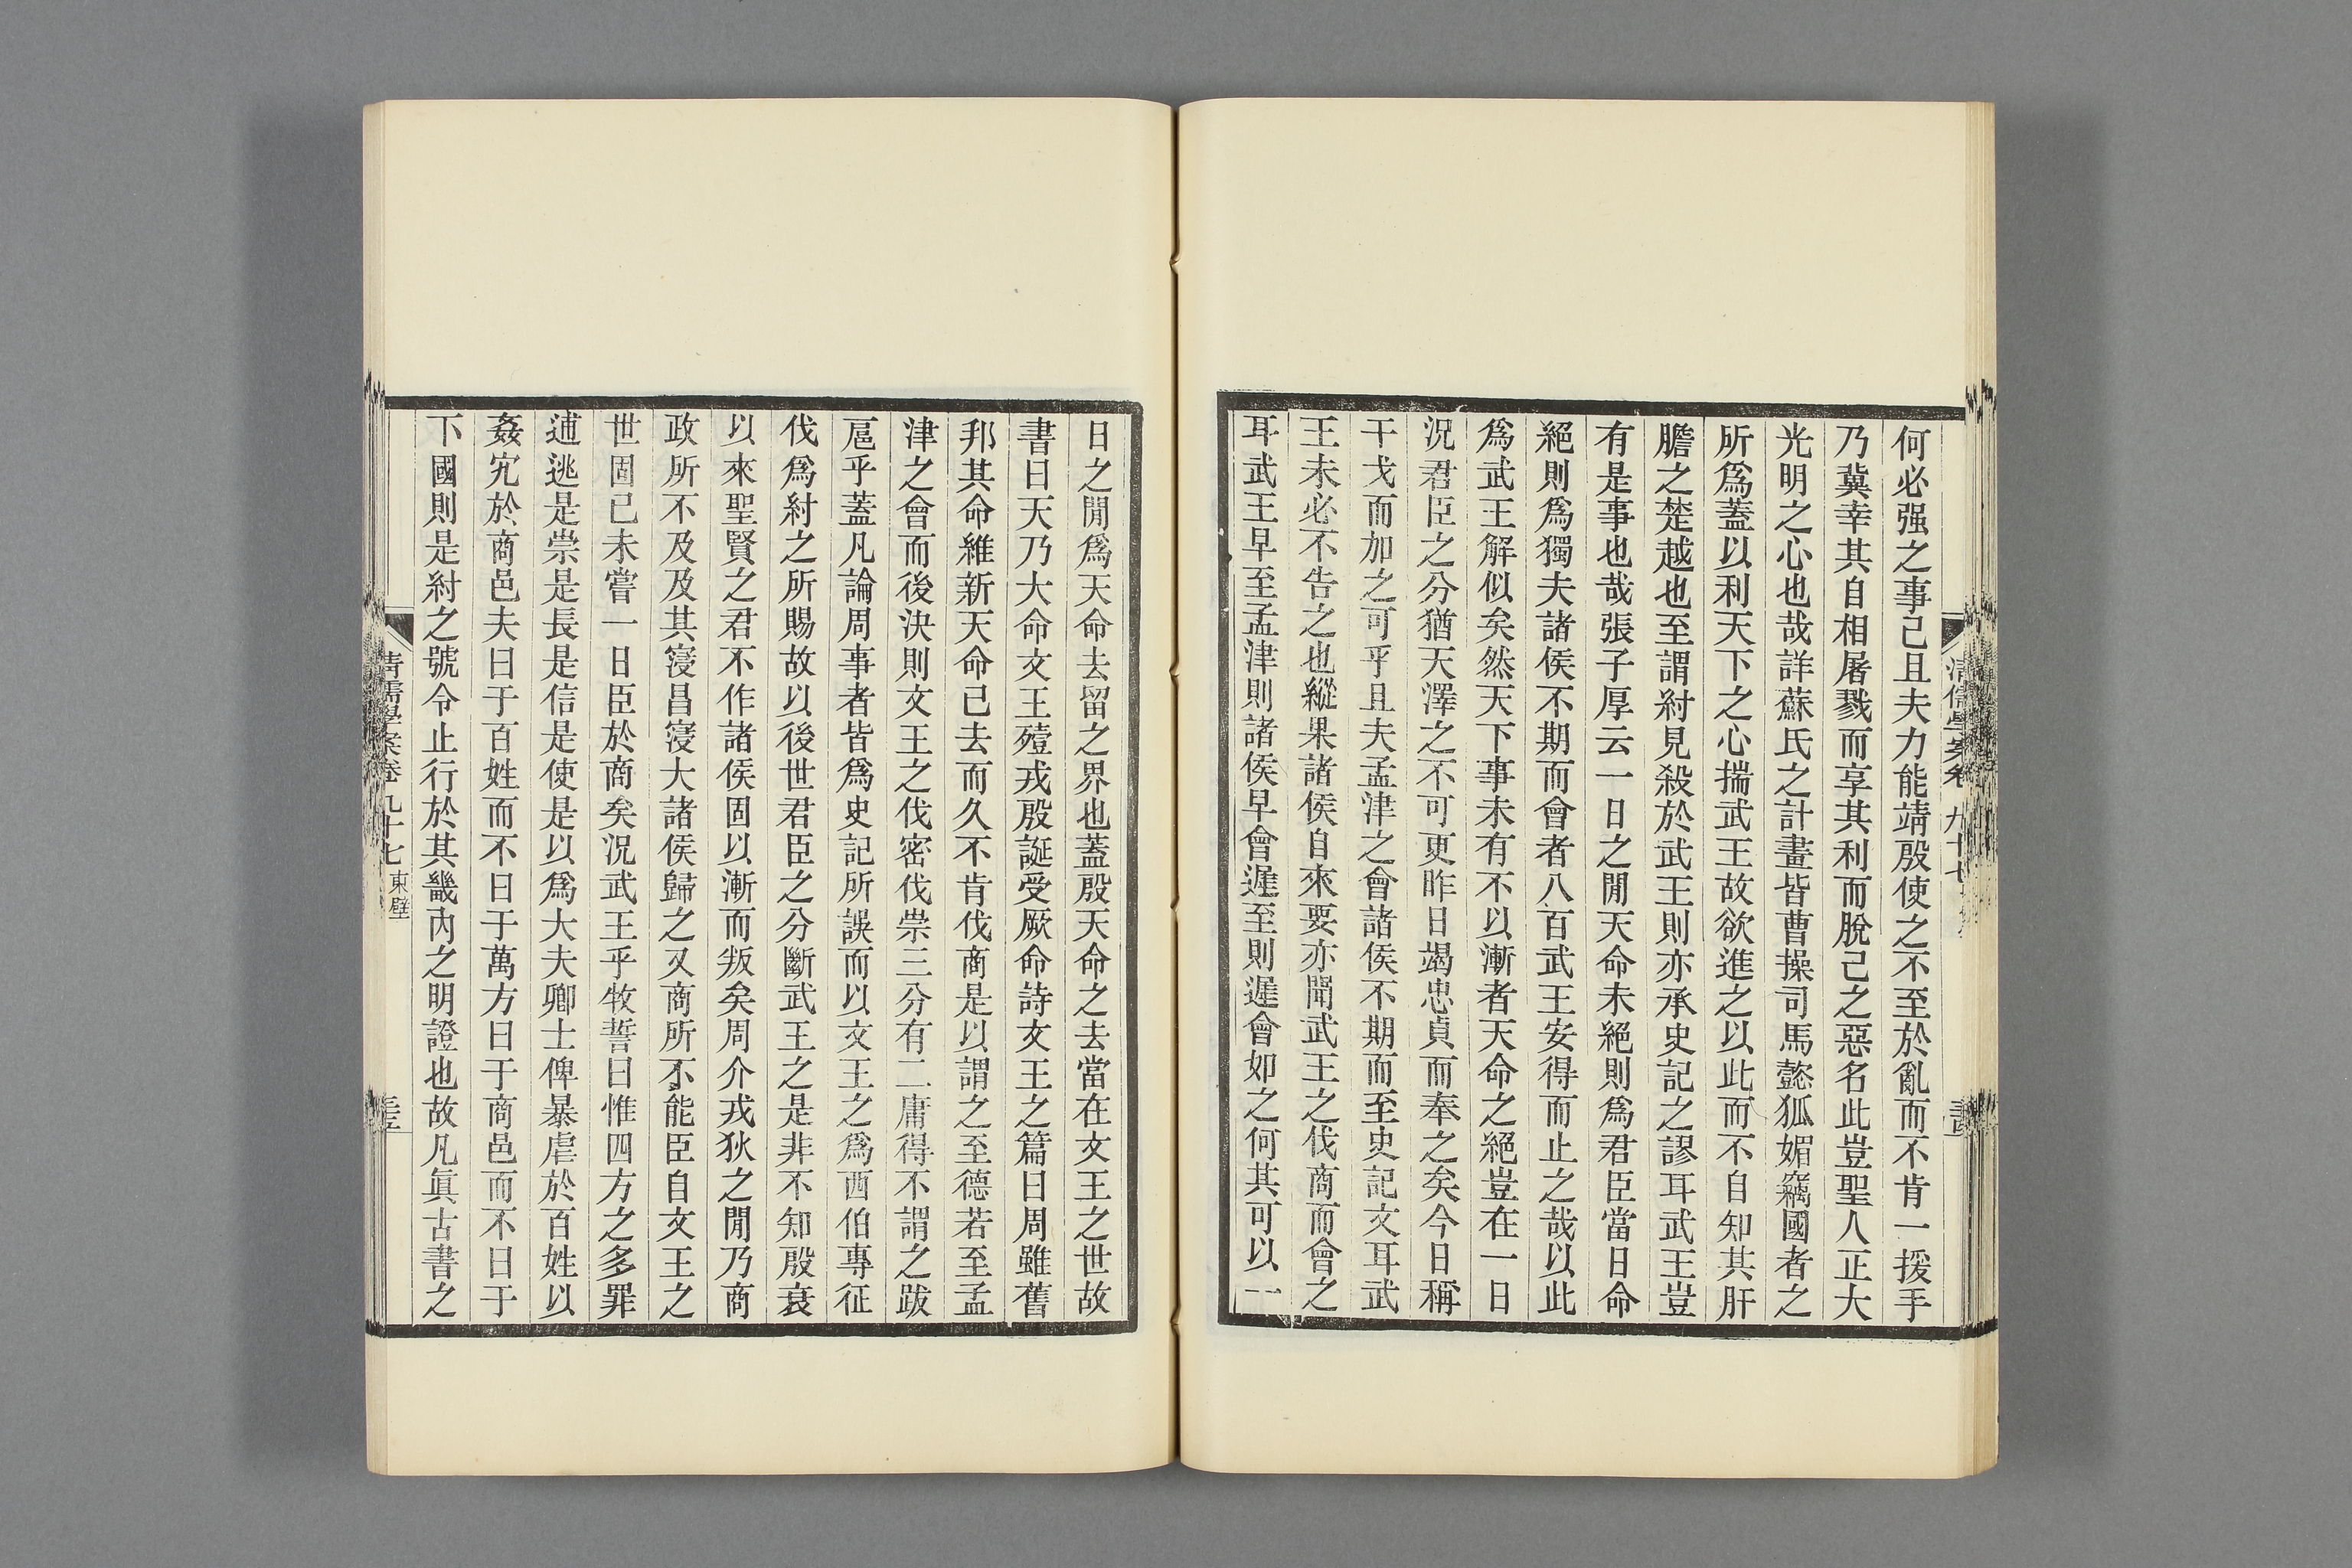 何必强之事己且夫力能靖殷使之不至於亂而不肯一援手
乃冀幸其自相屠戮而享其利而脫己之惡名此豈聖人正大
光明之心也哉詳蘇氏之計畫皆曹操司馬懿狐媚竊國者之
所爲蓋以利天下之心揣武王故欲進之以此而不自知其肝
膽之楚越也至謂紂見殺於武王則亦承史記之謬耳武王豈
有是事也哉張子厚云一日之閒天命未絕則爲君臣當日命
絕則爲獨夫諸侯不期而會者八百武王安得而止之哉以此
爲武王解似矣然天下事未有不以漸者天命之絕豈在一日
況君臣之分猶天澤之不可更昨日竭忠貞而奉之矣今日稱
干戈而加之可乎且夫孟津之會諸侯不期而至史記文耳武
王未必不告之也縱果諸侯自來要亦聞武王之伐商而會之
耳武王早至孟津則諸侯早會遲至則遲會如之何其可以一
清儒學案卷九十七
日之閒爲天命去留之界也蓋殷天命之去當在文王之世故
書曰天乃大命文王殪戎殷誕受厥命詩文王之篇曰周雖舊
邦其命維新天命已去而久不肯伐商是以謂之至德若至孟
津之會而後決則文王之伐密伐崇三分有二庸得不謂之跋
扈乎蓋凡論周事者皆爲史記所誤而以文王之爲西伯專征
伐爲紂之所賜故以後世君臣之分斷武王之是非不知殷衰
以來聖賢之君不作諸侯固以漸而叛矣周介戎狄之閒乃商
政所不及及其寖昌寖大諸侯歸之又商所不能臣自文王之
世固已未嘗一日臣於商矣況武王乎牧誓曰惟四方之多罪
逋逃是崇是長是信是使是以爲大夫卿士俾暴虐於百姓以
姦宄於商邑夫曰于百姓而不曰于萬方曰于商邑而不曰于
下國則是紂之號令止行於其畿內之明證也故凡眞古書之
清儒學案卷九十七 東壁